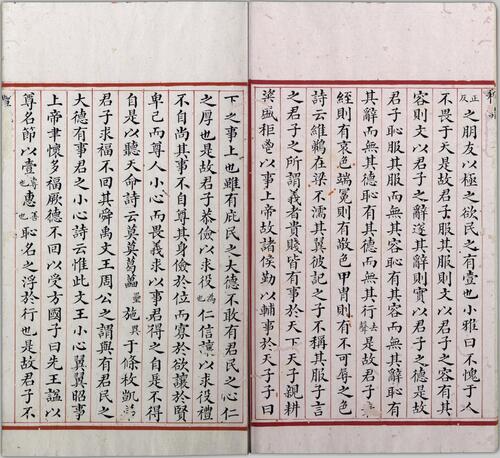 正反之朋友以極之欲民之有壹也小雅曰不愧于人
不畏于天是故君子服其服則文以君子之容有其
容則文以君子之辭遂其辭則實以君子之德是故
君子恥服其服而無其容恥有其容而無其辭恥有
其辭而無其德恥有其德而無其行去聲是故君子
絰則有哀色端冕則有敬色甲胄則有不可辱之色
詩云維鵜在梁不濡其翼彼記之子不稱其服子言
之君子之所謂義者貴賤皆有事於天下天子親耕
粢盛秬鬯以事上帝故諸侯勤以輔事於天子子曰
下之事上也雖有庇民之大德不敢有君民之心仁
之厚也是故君子恭儉以求役為也仁信讓以求役禮
不自尚其事不自尊其身儉於位而寡於欲讓於賢
卑己而尊人小心而畏義求以事君得之自是不得
自是以聽天命詩云莫莫葛藟壘施異于條枚凱
君子求福不回其舜禹文王周公之謂與有君民之
大德有事君之小心詩云惟此文王小心翼翼昭事
上帝聿懷多福厥德不回以受方國子曰先王謚以
尊名節以壹專也惠善也恥名之浮於行也是故君子不